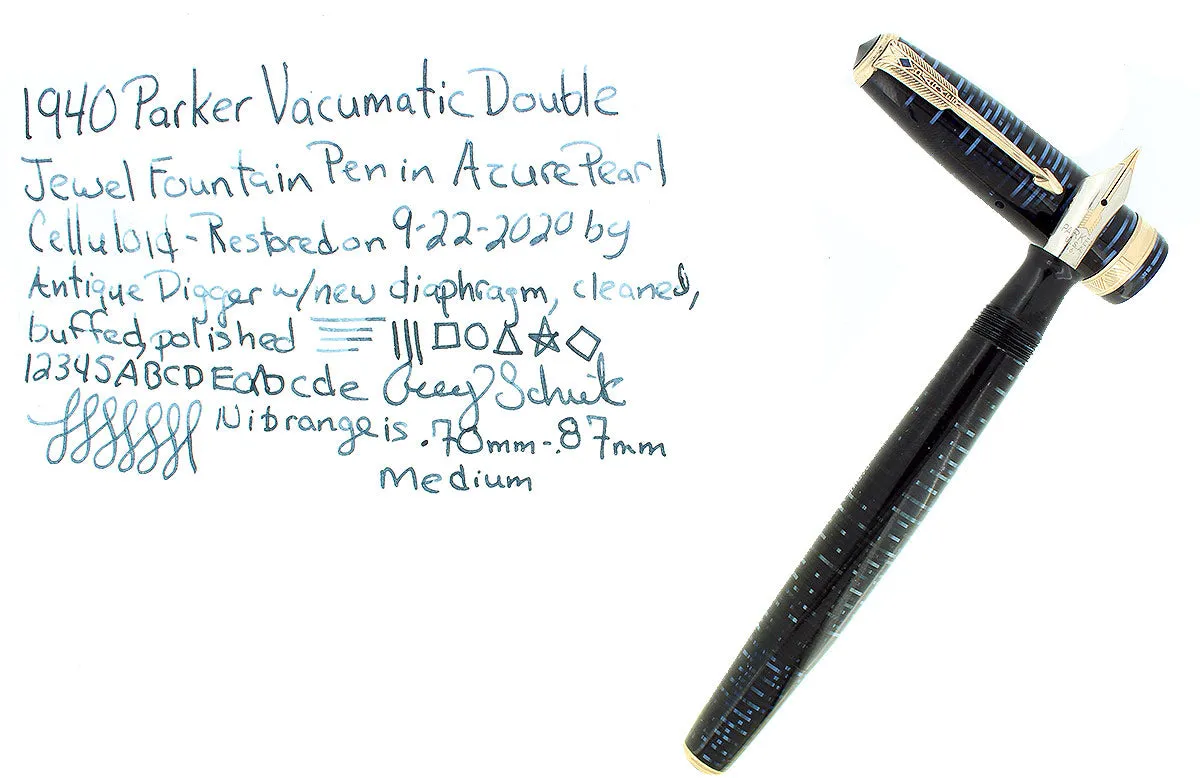 1940 Parker Vacumatic Double
Jewel Fountain Pen in Azure Pearl
Celluloid - Restored on 9-22-2020 by
Antique Digger w/new diaphragm, cleaned,
buffed, polished
12345ABCDEabcde
Nib range is .70mm-.87mm
Medium